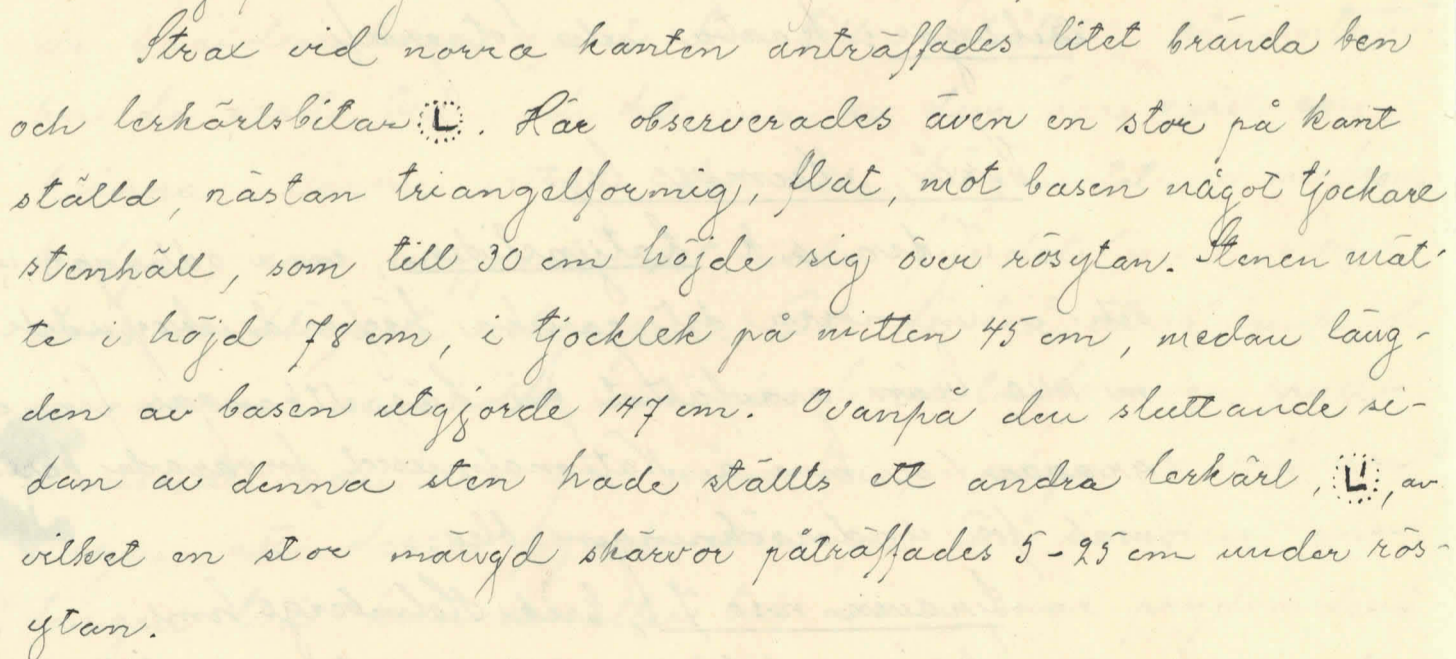 Strax vid norra kanten anträffades litet brända ben
och lerkärlsbitar L. Här observerades även en stor på kant
ställd, nästan triangelformig, flat, mot basen något tjockare
stenhäll, som till 30 cm höjde sig över rösytan. Stenen mät-
te i höjd 78 cm, i tjocklek på mitten 45 cm, medan läng-
den av basen utgjorde 147 cm. Ovanpå den sluttande si-
dan av denna sten hade ställts ett andra lerkärl, L', av
vilket en stor mängd skärvor påträffades 5-25 cm under rös-
ytan.